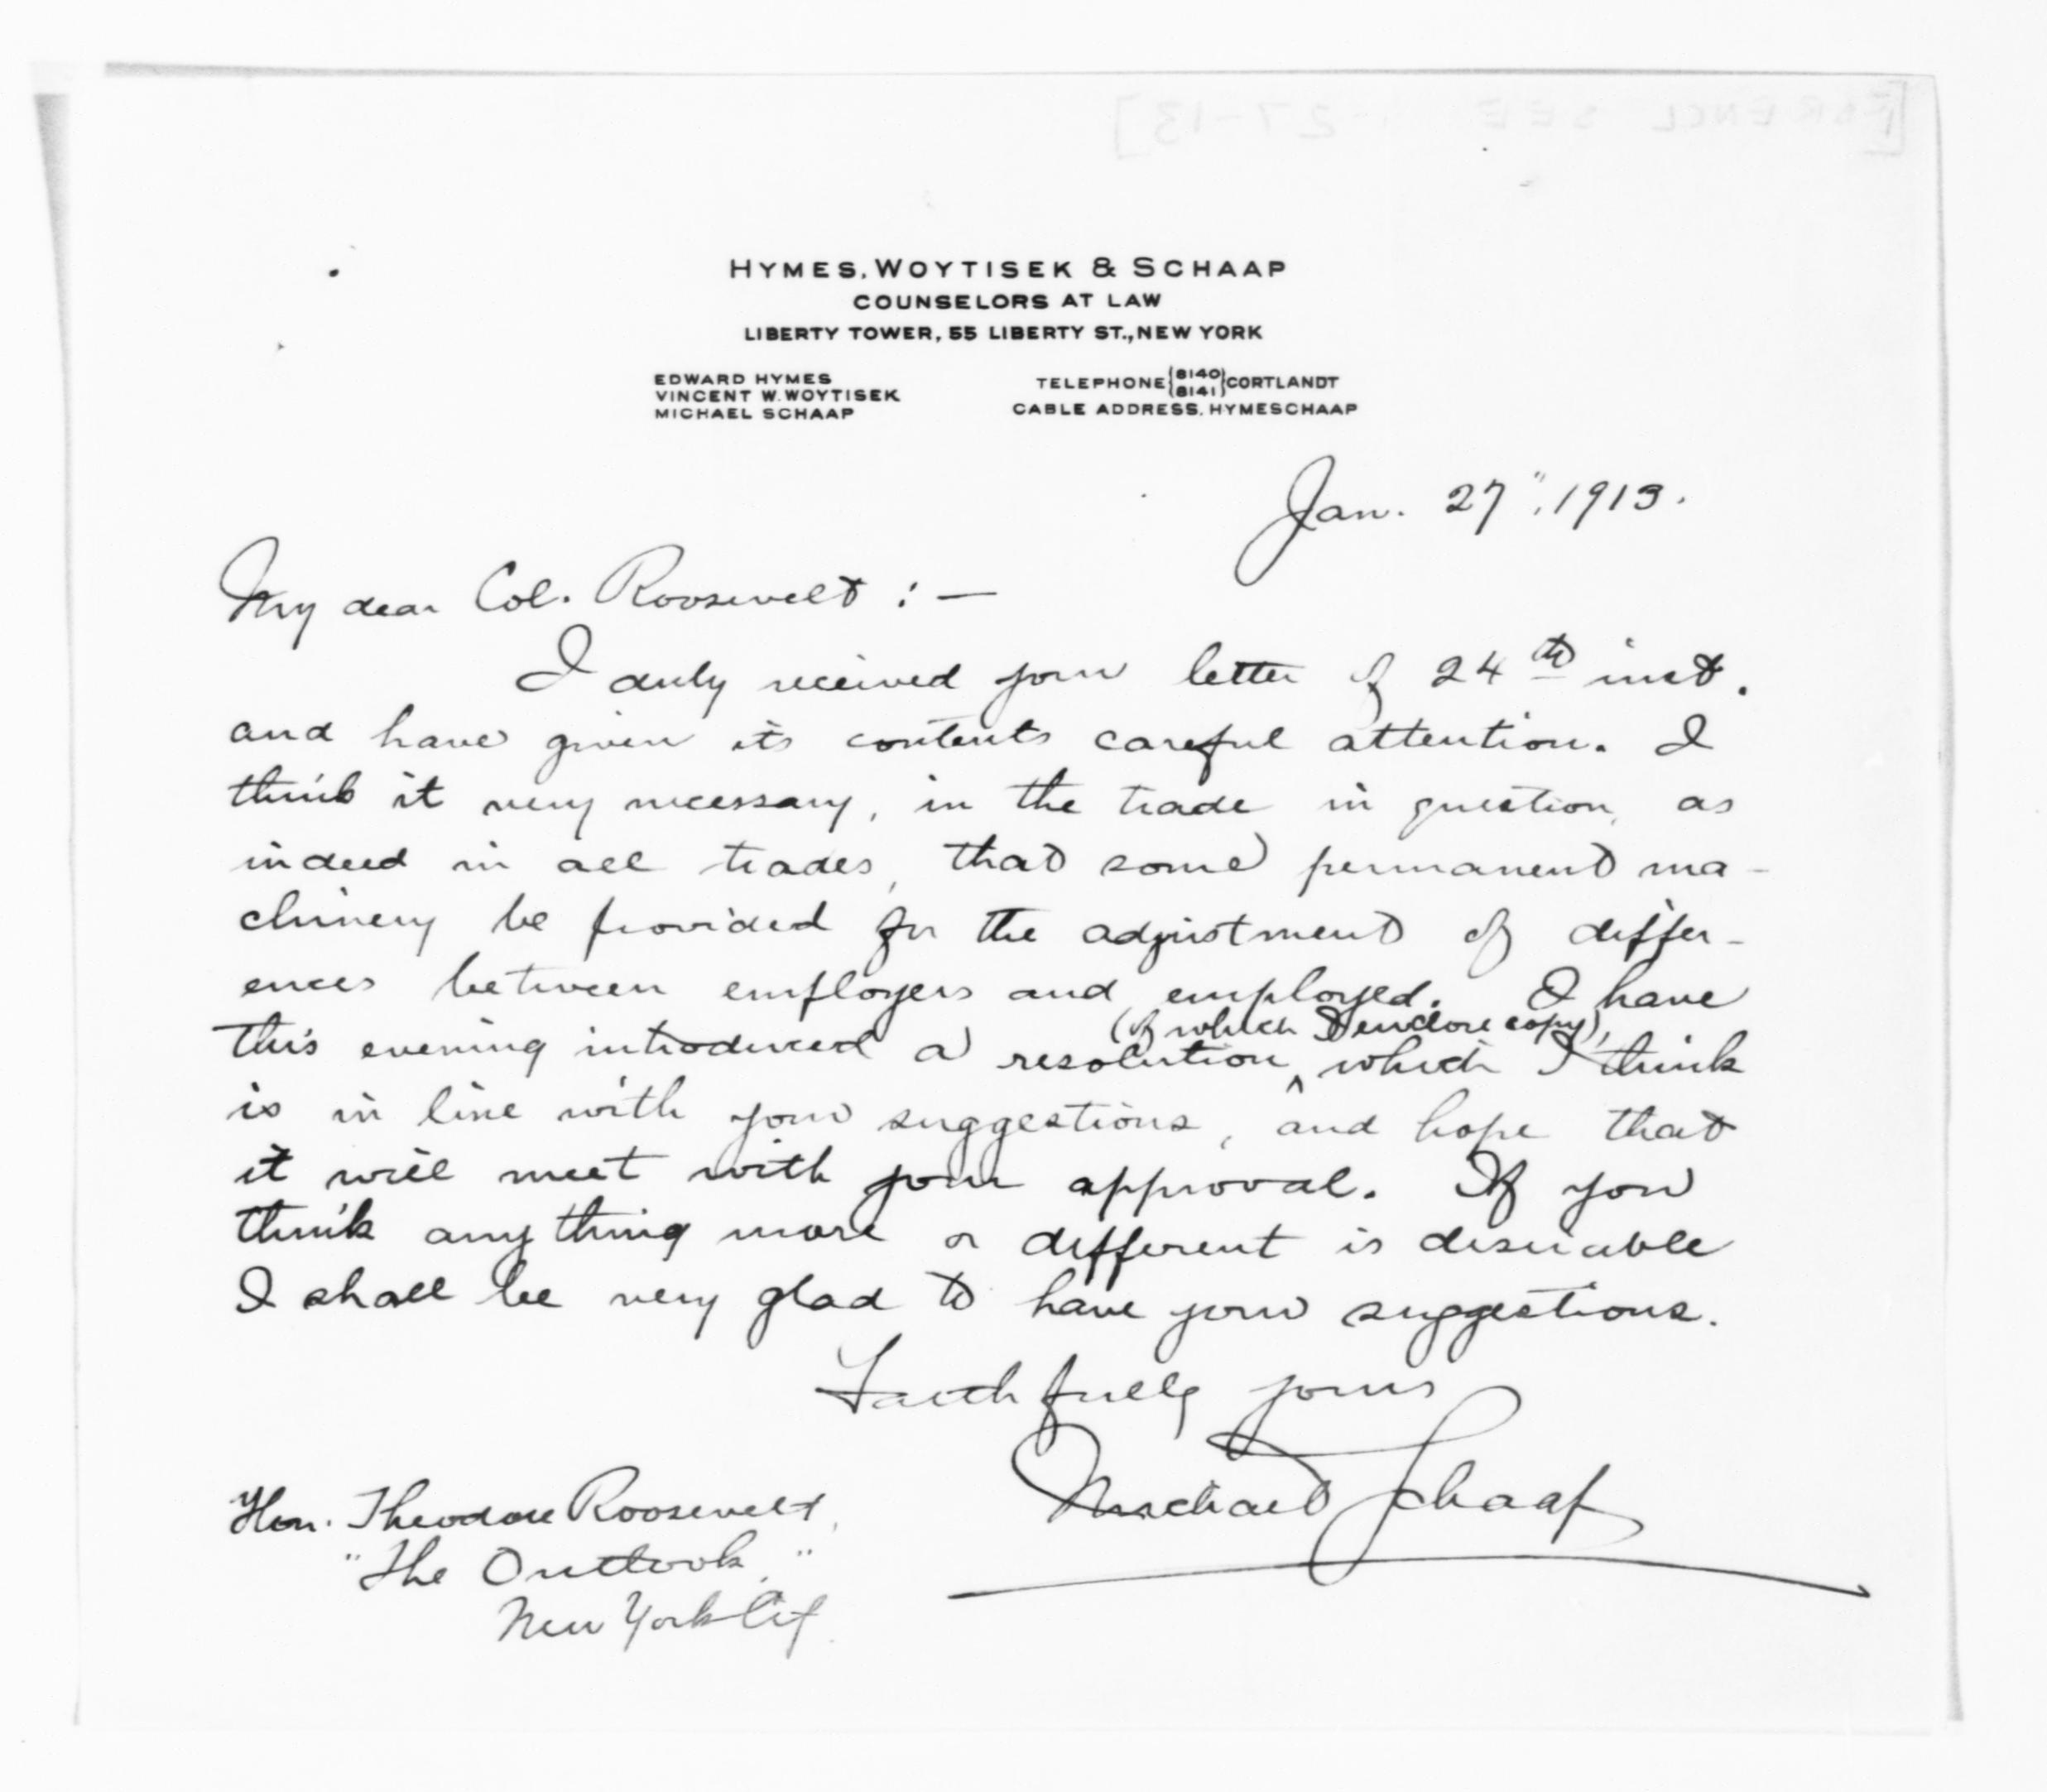 [FOR ENCL SEE 1-27-13]
HYMES, WOYTISEK & SCHAAP
COUNSELORS AT LAW
LIBERTY TOWER, 55 LIBERTY ST., NEW YORK
EDWARD HYMES
VINCENT W. WOYTISEK
MICHAEL SCHAAP
TELEPHONE {8140 8141} CORTLANDT
CABLE ADDRESS, HYMESCHAAP
Jan. 27", 1913.
My dear Col. Roosevelt : —
I duly received your letter of 24th inst.
and have given its contents careful attention. I
think it very necessary, in the trade in question, as
indeed in all trades, that some permanent ma-
chinery be provided for the adjustment of differ-
ences between employers and employed. I have
(of which I enclose copy),
this evening introduced a resolution ^ which I think
is in line with your suggestions, and hope that
it will meet with your approval. If you
think anything more or different is desirable
I shall be very glad to have your suggestions.
Faithfully yours
Michael Schaap
Hon. Theodore Roosevelt,
"The Outlook,"
New York City.